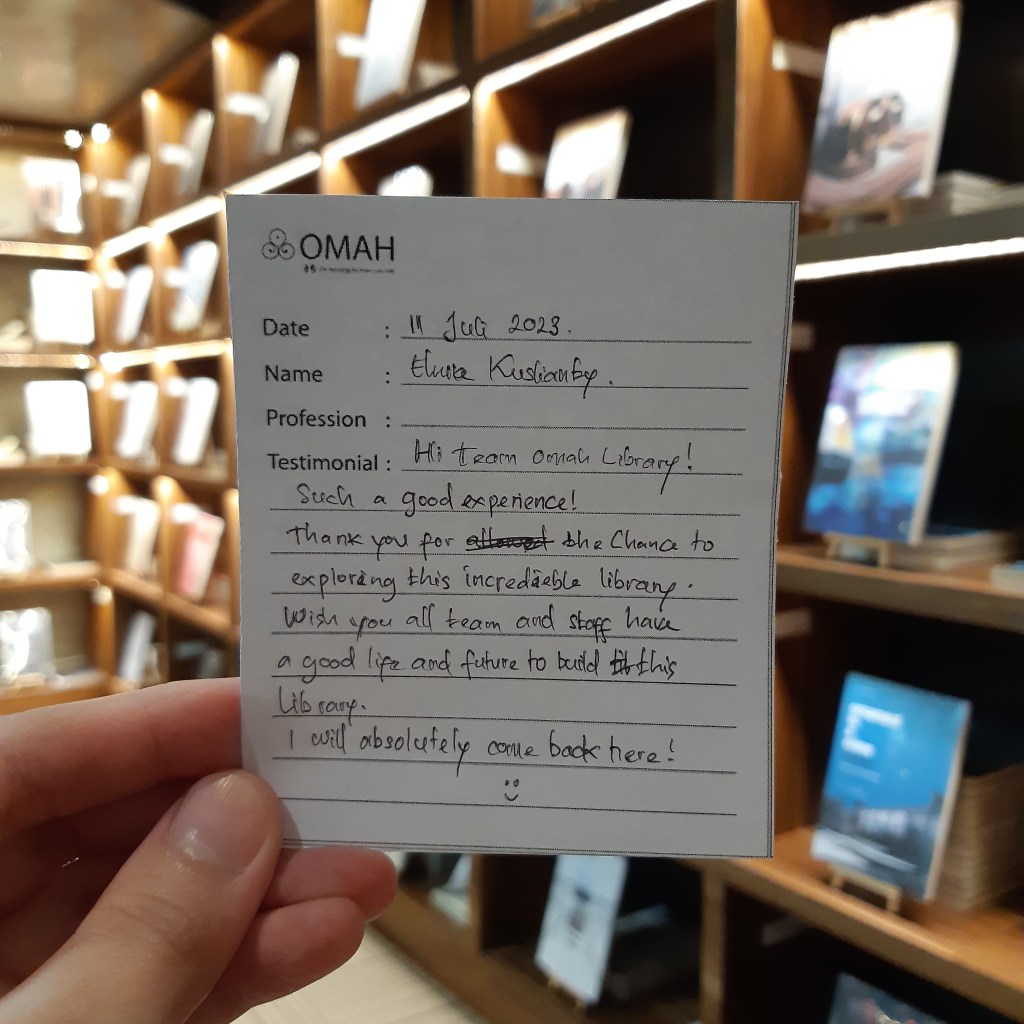 OMAH
Date : 11 Juli 2023.
Name :
Profession :
Testimonial : Hi team omah Library!
Such a good experience!
Thank you for the Chance to
exploring this incredible library.
Wish you all team and staff have
a good life and future to build this
Library.
I will absolutely come back here!